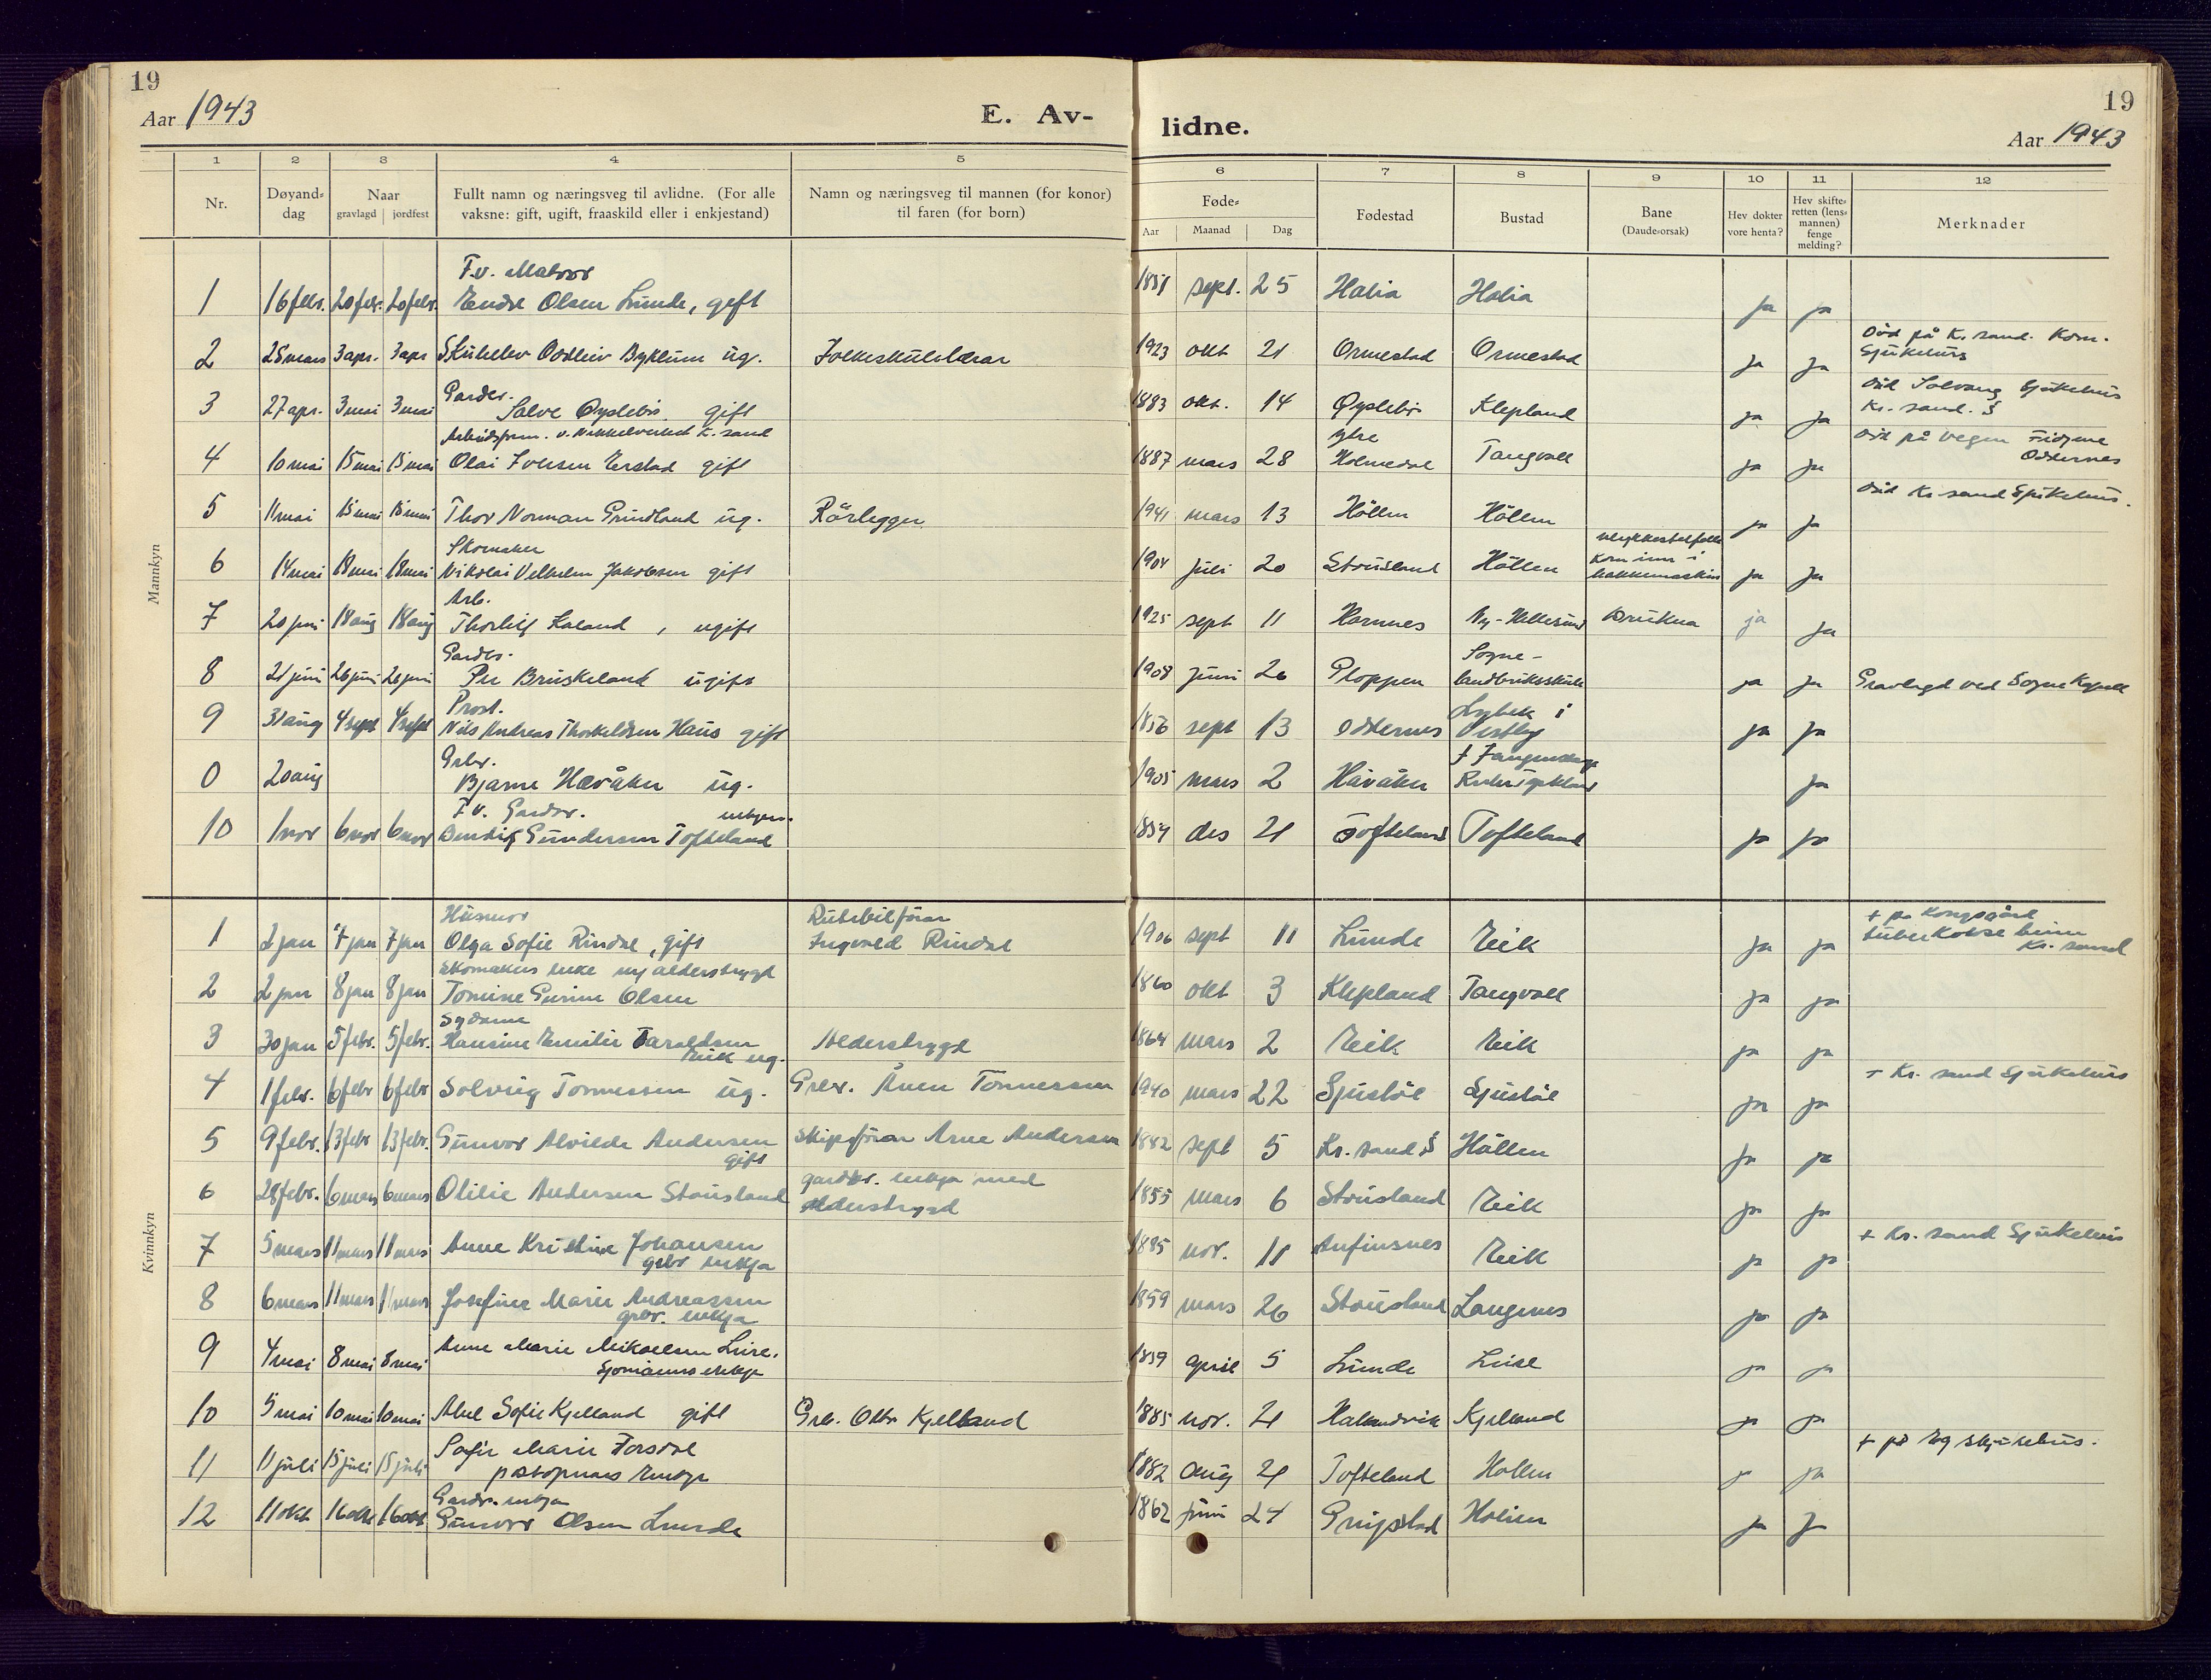 19
Aar 1943
E. Av-
lidne.
19
Aar 1943
1 2 3 4 5 6 7 8 9 10 11 12
Nr.
Døyand-dag
Naar gravlagd | jordfest
Fullt namn og næringsveg til avlidne. (For alle vaksne: gift, ugift, fraaskild eller i enkjestand)
Namn og næringsveg til mannen (for konor) til faren (for born)
Føde- Aar | Maanad | Dag
Fødestad
Bustad
Bane (Daude-orsak)
Hev dokter vore henta?
Hev skifte-retten (lens-mannen) fenge melding?
Merknader
Mannkyn
1 16 febr. 20 febr. 20 febr. F.v. Endre Olsen Lunde, gift 1851 sept. 25 ja ja
2 28 mars 3 apr. 3 apr Oddleiv Byklum ug. Folkeskulelærar 1923 okt 21 Ormestad Ormestad ja ja Död på Kr. sand. Kom. Sjukehus
3 27 apr. 3 mai 3 mai Gardbr. Salve Øyslebö gift 1883 okt. 14 Øyslebö Klepland ja ja Död Solvang Sjukehus Kr. sand. S
4 10 mai 15 mai 15 mai v. Nikkelverket K. sand Olai Iversen Erstad gift 1887 mars 28 Ytre Holmedal Tangvall ja ja Död på vegen Oddernes
5 11 mai 15 mai 15 mai Thor Norman Grundland ug. Rörleggar 1941 mars 13 Höllen Höllen ja ja Död Kr sand Sjukehus.
6 14 mai 18 mai 18 mai Skomaker Nikolai Velhelm Jakobsen gift 1904 juli 20 Stousland Höllen kom inn i hakkemaskin ja ja
7 20 juni 18 aug 18 aug Arb. Thorleif Haland, ugift 1925 sept 11 Hamnes Ny-Hellesund Drukna ja ja
8 21 juni 26 juni 26 juni Gardbr. Per Bruskeland ugift 1908 juni 26 Ploppen Søgne-landbruksskule ja ja Gravlagd ved Søgne Kapell
9 31 aug 4 sept 4 sept Prost. Nils Andreas Thorkeldsen Haus gift 1856 sept 13 Oddernes Lybek i Vestby ja ja
0 20 aug Bjarne Hævåker ug. 1905 mars 2 Håvåker ja
10 1 nov 6 nov 6 nov F.v. Gardbr. enkjem. Bendik Gundersen Tofteland 1854 des 21 Tofteland Tofteland ja ja
Kvinnkyn
1 2 jan 7 jan 7 jan Husmor Olga Sofie Rindal, gift Rutebilförar Ingvald Rindal 1906 sept 11 Lunde Eik ja ja + på Kongsgård tuberkolose heim Kr. sand
2 2 jan 8 jan 8 jan Skomakers enke m/ alderstrygd Tomine Gurine Olsen 1860 okt 3 Klepland Tangvall ja ja
3 30 jan 5 febr. 5 febr. Sydame Hansine Emilie Taraldsen Eik ug. Alderstrygd 1864 mars 2 Eik Eik ja ja
4 1 febr. 6 febr 6 febr Solveig Tönnessen ug. Grbr. Ånen Tönnessen 1940 mars 22 Sjustöl Sjustöl ja ja + Kr. sand Sjukehus
5 9 febr. 13 febr 13 febr. Gunvor Alvilde Andersen gift Skipsförar Arne Andersen 1882 sept 5 Kr. sand S Höllen ja ja
6 28 febr. 6 mars 6 mars Otilie Andersen Stousland gardbr. enkja med alderstrygd 1855 mars 6 Stousland Eik ja ja
7 5 mars 11 mars 11 mars Anne Kristine Johansen gbr enkja 1885 nov. 11 Anfinsnes Eik ja ja + Kr. sand Sjukehus
8 6 mars 11 mars 11 mars Josefine Marie Andreassen grbr. enkja 1859 mars 26 Stousland Langenes ja ja
9 4 mai 8 mai 8 mai Anne Marie Mikaelsen Sjömanns enkje 1859 april 5 Lunde ja ja
10 5 mai 10 mai 10 mai Abel Sofie Kjelland gift Grb. Kjelland 1885 nov. 21 Kjelland ja ja
11 11 juli 15 juli 15 juli Sofie Marie Forsdal 1882 aug 21 Tofteland Hollen ja ja + på Eg skjukehus.
12 11 okt 16 okt 16 okt Gardbr. enkja Gunvor Olsen Lunde 1862 juni 24 ja ja